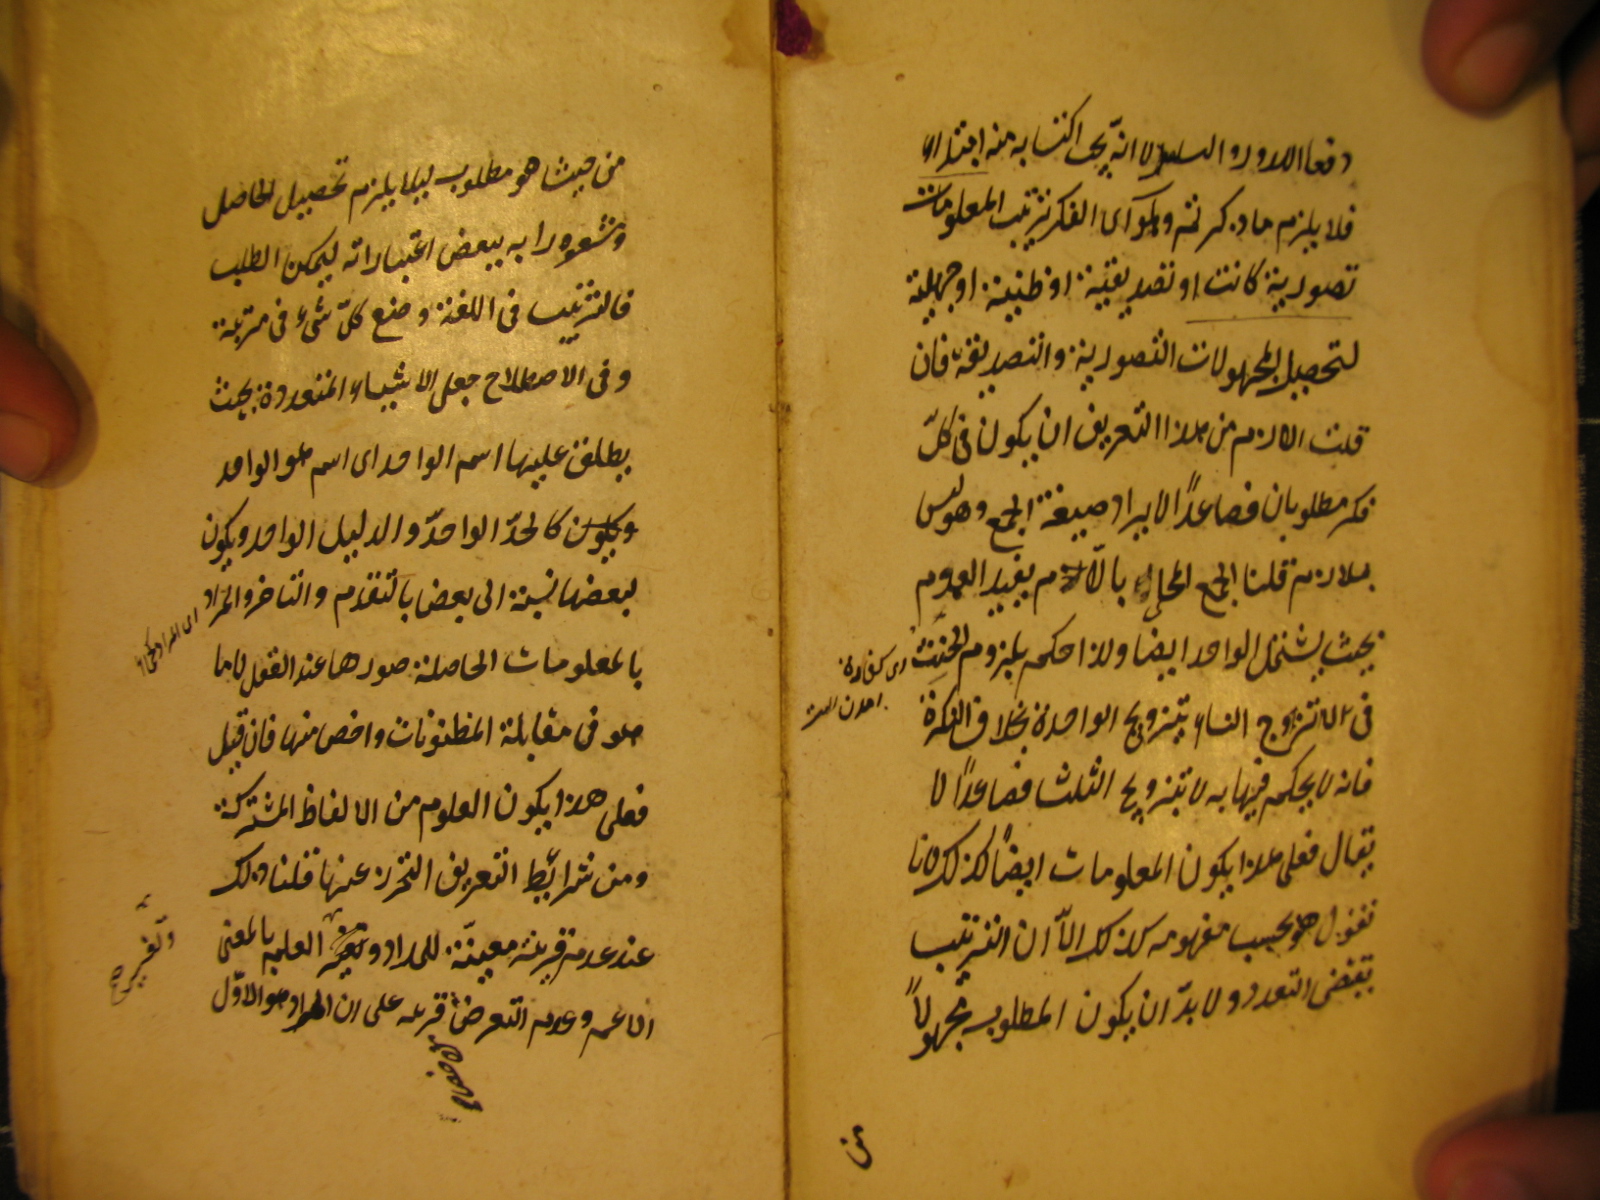 دفعا للدور والتسلسل لا انه يجب اكتسابه منه ابتداء
فلا يلزم ما ذكر ثم وهو اى الفكر ترتيب المعلومات
تصورية كانت او تصديقية او ظنية او جهلية
لتحصيل المجهولات التصورية والتصديقية فان
قلت اللازم من هذا التعريف ان يكون فى كلّ
فكر مطلوبان فصاعدًا لايراد صيغة الجمع وهو ليس
بلازم قلنا الجمع المحلى باللام يفيد العموم
بحيث يشتمل الواحد ايضا ولذا حكم بلزوم الحنث
فى لا اتزوج النساء بتزويج الواحدة بخلاف النكرة
فانه لا يحكم فيها به لا بتزويج الثلث فصاعدًا لا
يقال فعلى هذا يكون المعلومات ايضًا كذلك لانا
نقول هو بحسب مفهومه كذلك الّا ان الترتيب
يقتضى التعدد ولا بدّ ان يكون المطلوب مجهولاً
من
من حيث هو مطلوب ليلا يلزم تحصيل الحاصل
ومشعورا به ببعض اعتباراته ليمكن الطلب
فالترتيب فى اللغة وضع كلّ شىء فى مرتبته
وفى الاصطلاح جعل الاشياء المتعددة بحيث
يطلق عليها اسم الواحد اى اسم هو الواحد
كالحدّ الواحد والدليل الواحد ويكون
لبعضها نسبة الى بعض بالتقدم والتاخر والمراد
بالمعلومات الحاصلة صورها عند العقل لا ما
هو فى مقابلة المظنونات واخص منها فان قيل
فعلى هذا يكون العلوم من الالفاظ المشتركة
ومن شرائط التعريف التحرز عنها قلنا ذلك
عند عدم قرينة معينّة للمراد العلم بالمعنى
الاعم وعدم التعرض على ان المراد هو الاوّل